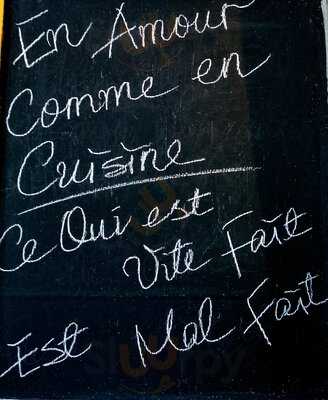 En Amour
Comme en
Cuisine
Ce Qui est
Vite Fait
Est Mal Fait
slurpy